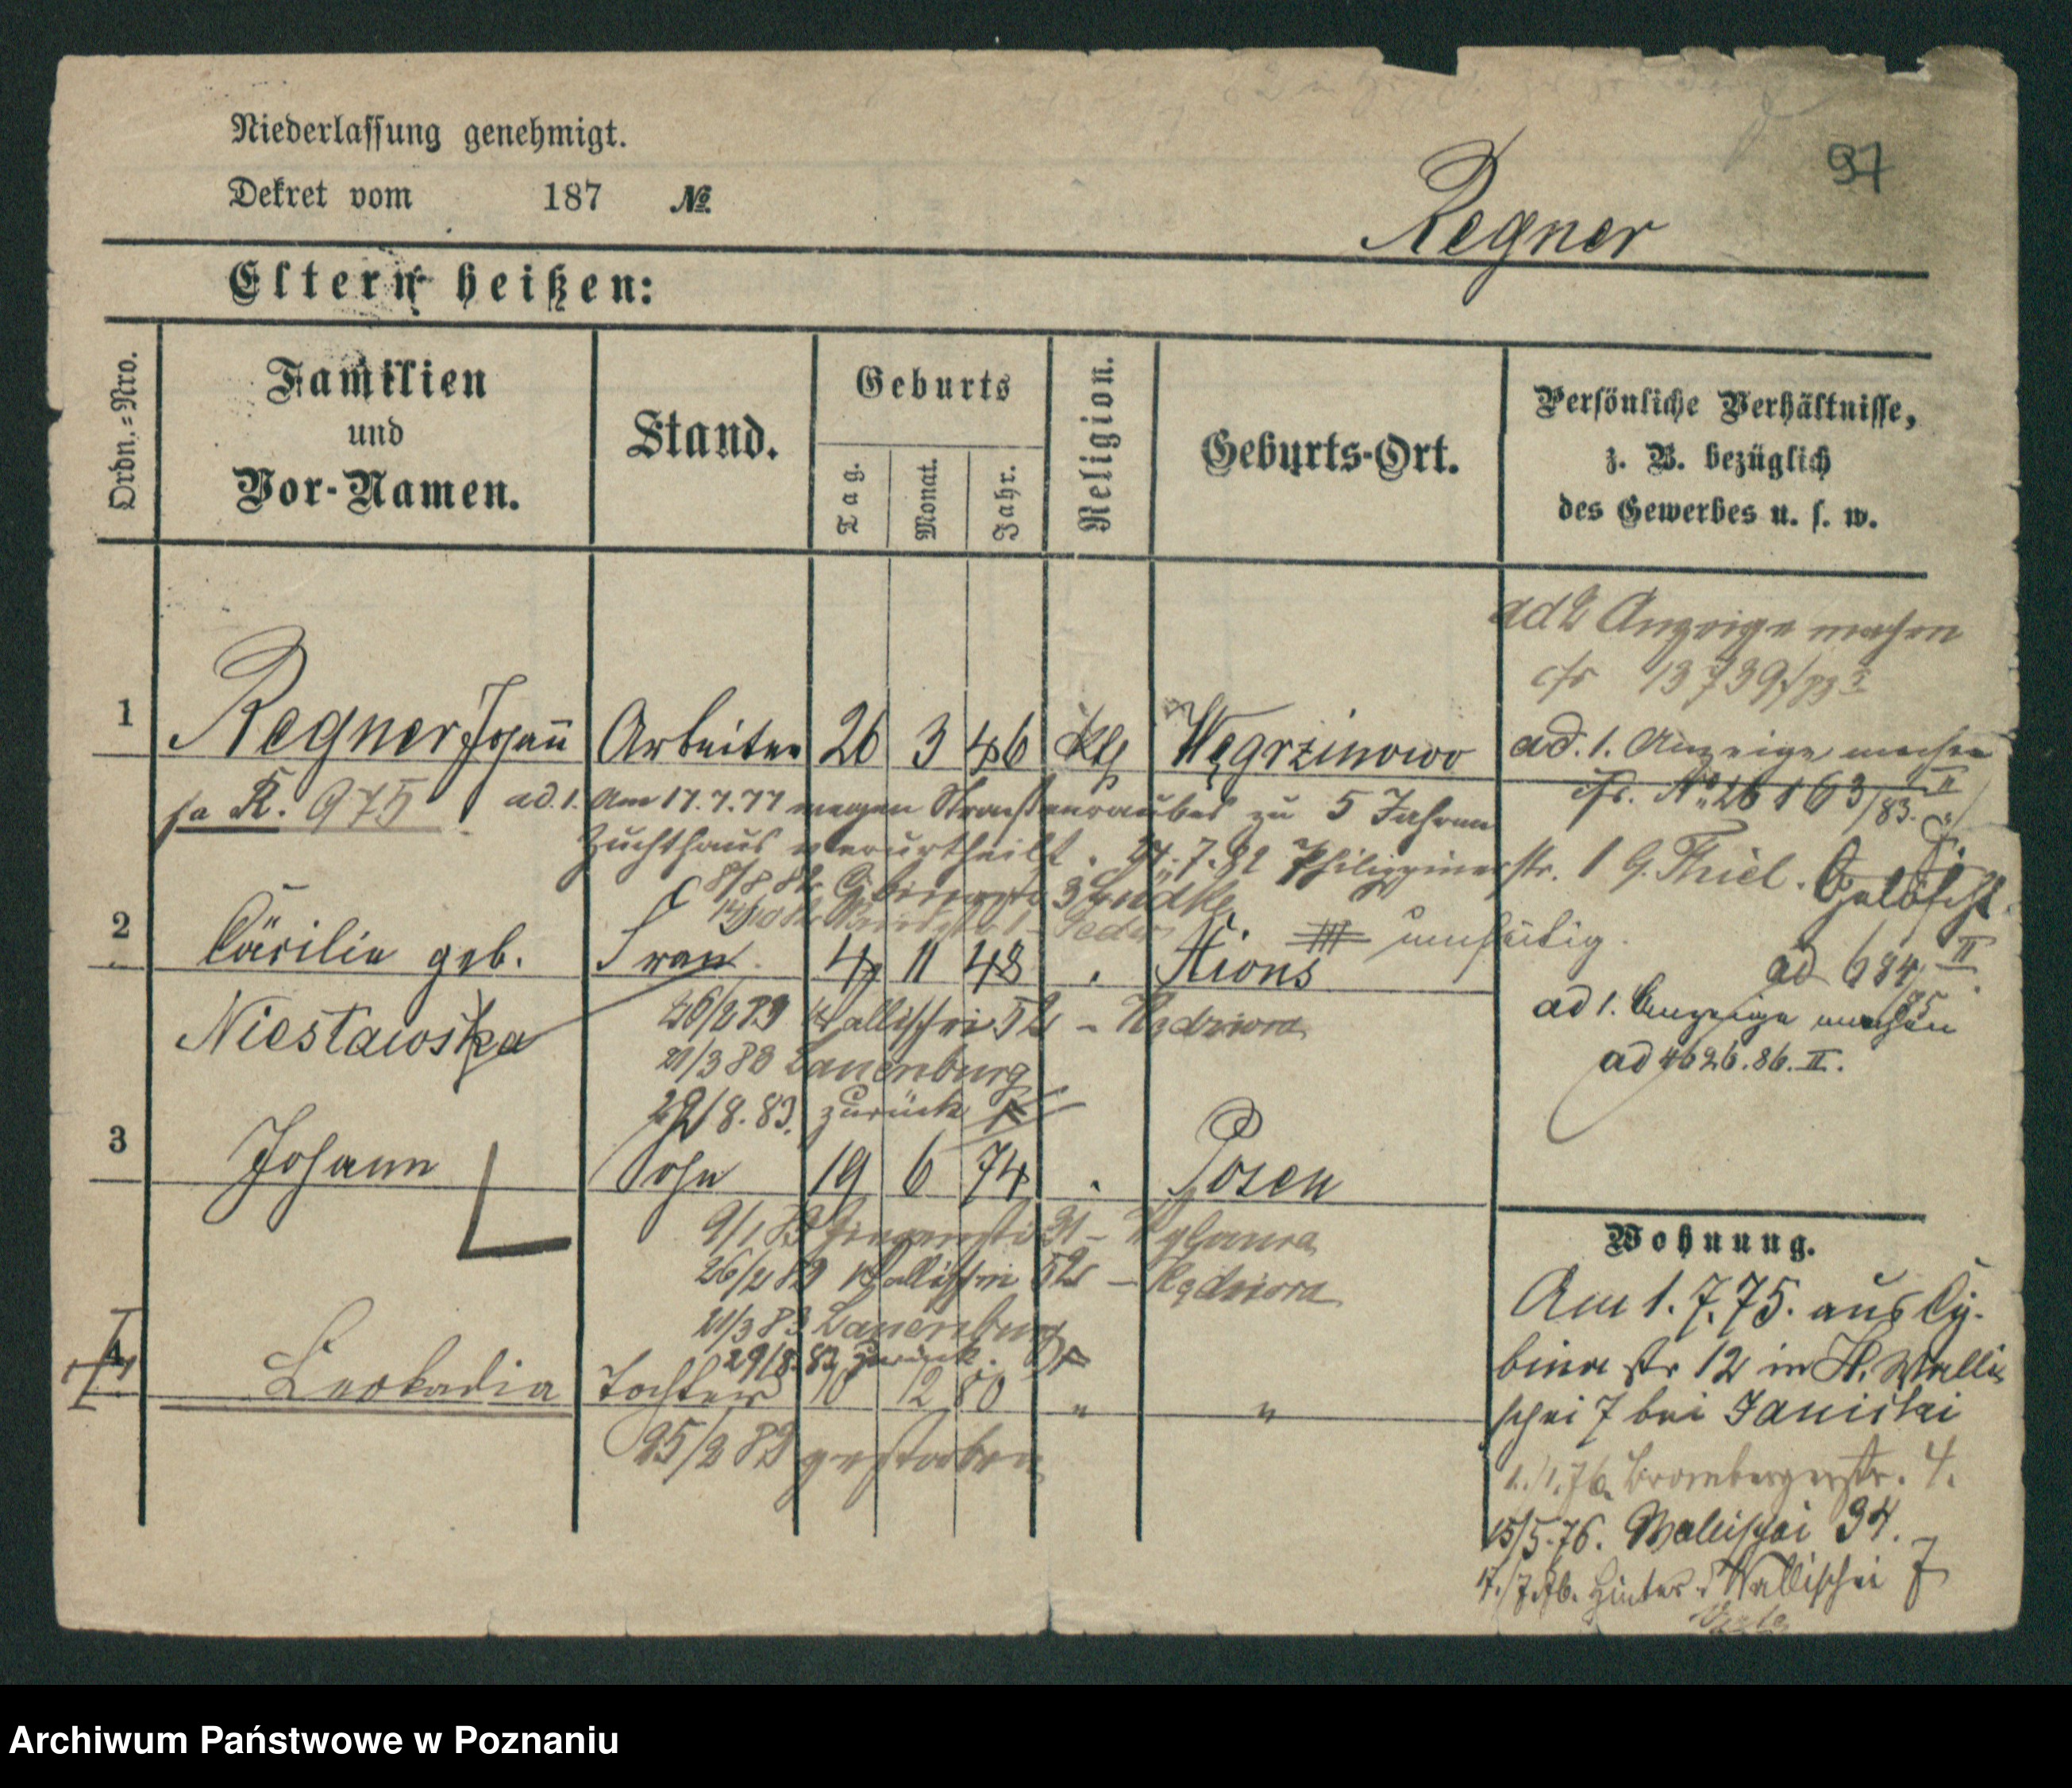 97
Niederlassung genehmigt.
Dekret vom 187 №
Regner
Eltern heißen:
Ordn.=Nro.
Familien
und
Vor-Namen.
Stand.
Geburts
Tag.
Monat.
Jahr.
Religion.
Geburts-Ort.
Persönliche Verhältnisse,
z. B. bezüglich
des Gewerbes u. s. w.
ad 2 Anzeige machen
cfr 13739/83
1 Regner Johann Arbeiter 26 3 46 kth Węgrzinowo
ad. 1. Anzeige machen
cfr. No 26163/83. II
R. 975
ad. 1. Am 17.7.77 wegen Straßenraubes zu 5 Jahren
Zuchthaus verurtheilt. 27.7.82 Philippinerstr. 1 b. Thiel. Gelöscht
8/8 82 3 Lüdtke
2 Cäcilie geb. Frau 4 11 48 . Xions
ad 684 II
85
Niestawska
26/2 83 Wallischei 52 - Kędziora
ad 1. Anzeige machen
21/3 83 Lauenburg
ad 4626.86.II.
29/8.83. zurück
3 Johann Sohn 19 6 74 . Posen
9/1 83 31 -
Wohnung.
26/2 83 Wallischei 52 - Kędziora
Am 1.7.75. aus Cy-
21/3 83 Lauenburg
29/8 83 zurück
bina str 12 in H. Walli
4 Leokadia Tochter 10 12 80 " "
schei 7 bei Janicki
25/2 82 gestorben
1./1.76. Brombergerstr. 4.
15/5.76. Wallischei 94.
17./7.76. Hinter Wallischei 7
Archiwum Państwowe w Poznaniu